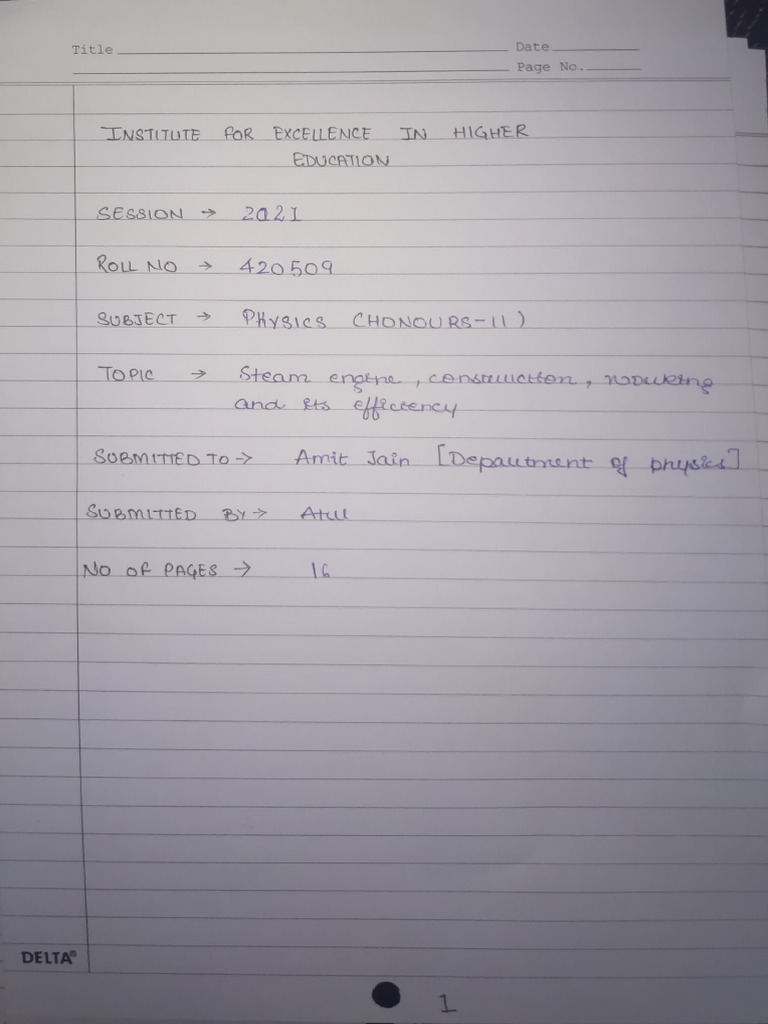 Title Date
Page No.
INSTITUTE FOR EXCELLENCE IN HIGHER
EDUCATION
SESSION → 2021
ROLL NO → 420509
SUBJECT → PHYSICS (HONOURS-II)
TOPIC → Steam engine, construction, working
and its efficiency
SUBMITTED TO → Amit Jain [Department of physics]
SUBMITTED BY → Atul
NO OF PAGES → 16
DELTA®
1